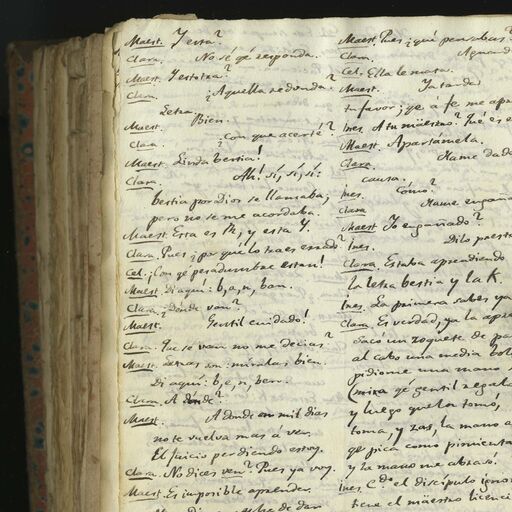 Maest. Y esta?
Clara. No sé qé responda.
Maest. Y estotra?
Clara. ¿Aquella redonda?
Letra.
Maest. Bien.
Clara. ¿Con que acerté?
Maest. Linda bestia!
Clara. Ah! sí, sí, sí:
bestia por dios se llamaba,
pero no se me acordaba.
Maest. Esta es R, y esta Y.
Clara. Pues ¿pa qe lo traes errado?
Cel. ¡Con qé pesadumbre estan!
Maest. Di aqui: b, a, n, ban.
Clara. ¿Donde van?
Maest. Gentil cuidado!
Clara. Que se van no me decias?
Maest. Letras son: míralas bien.
Di aqui: b, e, n, ben.
Clara. A donde?
Maest. A donde en mil dias
no te vuelva mas á ver.
El juicio perdiendo estoy.
Clara. No dices ven? Pues ya voy.
Maest. Es imposible aprender.
Maest. Pues ¿qué pensabas?
Clara.
Cel. Ella le mata.
Maest. Ya tarda
tu favor; qe, a fe me
Ines. A tu maestro? Qué es
Maest. Apartámela.
Clara. Hame dado
causa.
Ines. Cómo?
Clara Hame
Maest Yo engañado?
Ines. Dilo presto
Clara. Estaba aprendiendo
la letra bestia y la K.
Ines. La primera sabes ya
Clara. Es verdad, ya la
Saco un zoquete de
al cabo una media
pidióme una mano
(mira qé gentil
y luego que la tomó,
toma, y zas, la mano
qe pica como pimienta
y la mano me abrasó.
Ines. Cdo el discípulo
tiene el maestro